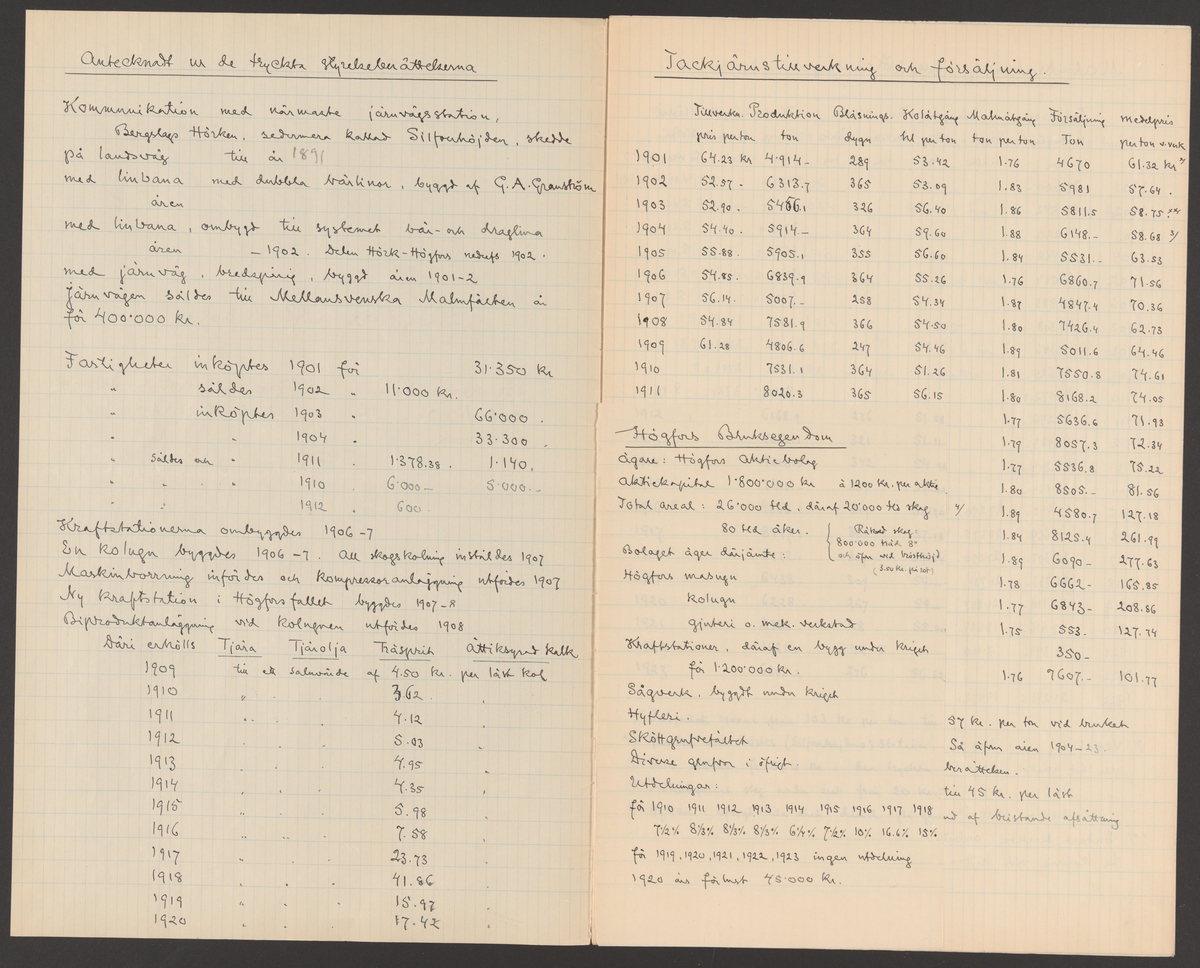 Antecknadt ur de tryckta styrelseberättelserna
Kommunikation med närmaste järnvägsstation,
Bergslags Hörken, sedermera kallad Silfverhöjden, skedde
på landsväg till år 1891
med linbana med dubbla bärlinor, byggd af G.A. Granström
åren
med linbana, ombygd till systemet bär- och draglina
åren – 1902. Delen Hörk-Högfors nedrefs 1902.
med järnväg, bredspårig, byggd åren 1901-2
Järnvägen såldes till Mellansvenska Malmfälten år
för 400·000 Kr.
Fastigheter inköptes 1901 för 31·350 Kr
" såldes 1902 " 11·000 Kr.
" inköptes 1903 " 66·000 "
" " 1904 " 33·300 "
" såldes och " 1911 " 1·378.38 " 1·140 "
" " " " 1910 " 6·000– 5·000 –
" " 1912 " 600
Kraftstationerna ombyggdes 1906-7
En kolugn byggdes 1906-7. All skogskolning inställdes 1907
Maskinborrning infördes och kompressoranläggning utfördes 1907
Ny kraftstation i Högforsfallet byggdes 1907-8
Biproduktanläggning vid kolugnen utfördes 1908
Däri erhölls Tjära Tjärolja Träsprit Ättiksyrad kalk
1909 till ett saluvärde af 4.50 kr. per läst kol
1910 " 3.62 "
1911 " " " 4.12
1912 " " " 5.03
1913 " " " 4.95 "
1914 " " " 4.35 "
1915 " " " 5.98 "
1916 " " " 7.58 "
1917 " " " 23.73 "
1918 " " " 41.86 "
1919 " " " 15.97 "
1920 " " " 17.42 "
Tackjärnstillverkning och försäljning.
Tillverkn. Produktion Blåsnings- Kolåtgång Malmåtgång Försäljning medelpris
pris per ton ton dygn hl per ton ton per ton Ton per ton v. verk
1901 64.23 kr 4·914– 289 53.42 1.76 4670 61.32 kr
1902 52.57 " 6313.7 365 53.09 1.83 5981 57.64 "
1903 52.90 " 5456.1 326 56.40 1.86 5811.5 58.75
1904 54.40 " 5914– 364 59.60 1.88 6148.– 58.68 3/
1905 55.88 " 5905.1 355 56.60 1.84 5531– 63.53
1906 54.85 " 6839.9 364 55.26 1.76 6860.7 71.56
1907 56.14 " 5007.– 258 54.34 1.87 4847.4 70.36
1908 54.84 7581.9 366 54.50 1.80 7426.4 62.73
1909 61.28 4806.6 247 54.46 1.89 5011.6 64.46
1910 7531.1 364 51.26 1.81 7550.8 74.61
1911 8020.3 365 56.15 1.80 8168.2 74.05
1.77 5636.6 71.93
1.79 8057.3 72.34
1.77 5536.8 75.22
1.80 8505.– 81.56
4/ 1.89 4580.7 127.18
1.84 8125.4 261.99
1.89 6090– 277.63
1.78 6662– 165.85
1.77 6843– 208.86
1.75 553– 127.74
350–
1.76 7607.– 101.77
Högfors Bruksegendom
Ägare: Högfors Aktiebolag
Aktiekapital 1·800·000 kr à 1200 Kr. per aktie
Total areal: 26·000 tld, däraf 20·000 tld skog
80 tld åker.
skog:
800·000 träd 8"
och öfver vid brösthöjd
Bolaget äger därjämte:
Högfors masugn
kolugn
gjuteri o. mek. verkstad
Kraftstationer, däraf en bygg under kriget
för 1·200·000 Kr.
Sågverk, byggdt under kriget
Hyfleri.
Sköttgrufvefältet
Diverse grufvor i öfrigt.
Utdelningar:
för 1910 1911 1912 1913 1914 1915 1916 1917 1918
7½% 8⅓% 8⅓% 8⅓% 6¼% 7½% 10% 16.6% 15%
för 1919, 1920, 1921, 1922, 1923 ingen utdelning
1920 års förlust 45·000 Kr.
57 Kr. per ton vid bruket
Så äfven åren 1904–23.
berättelsen.
till 45 kr. per läst
af bristande afsättning